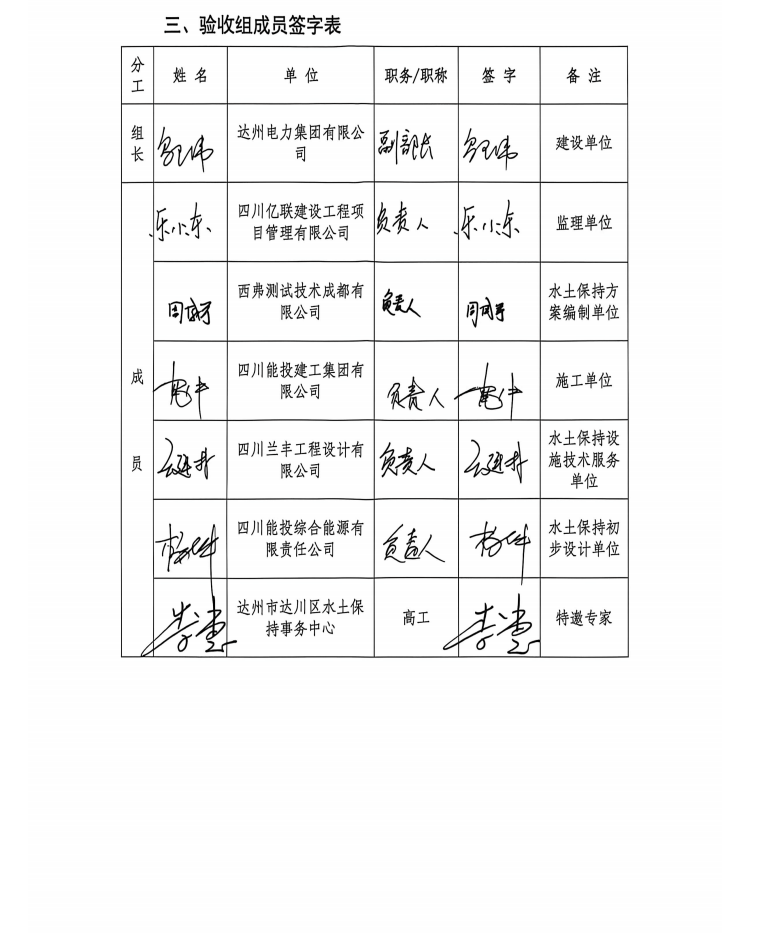 三、验收组成员签字表
分工 姓名 单位 职务/职称 签字 备注
组长 达州电力集团有限公司 副部长 建设单位
成员
乐小东 四川亿联建设工程项目管理有限公司 负责人 乐小东 监理单位
西弗测试技术成都有限公司 负责人 水土保持方案编制单位
四川能投建工集团有限公司 负责人 施工单位
四川兰丰工程设计有限公司 负责人 水土保持设施技术服务单位
四川能投综合能源有限责任公司 负责人 水土保持初步设计单位
达州市达川区水土保持事务中心 高工 特邀专家